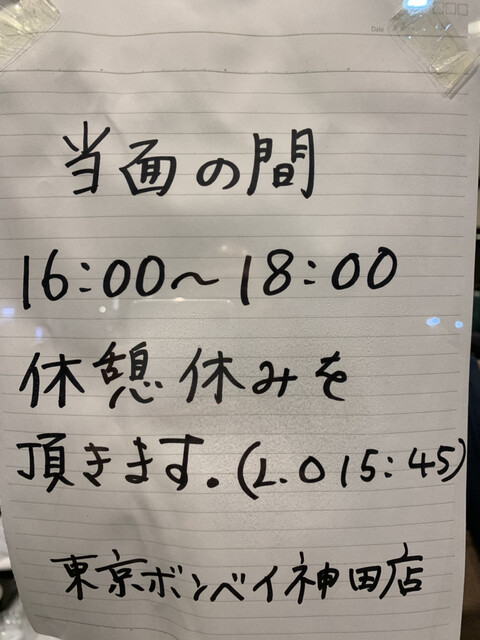 Date
当面の間
16:00～18:00
休憩休みを
頂きます。(L.O 15:45)
東京ボンベイ神田店